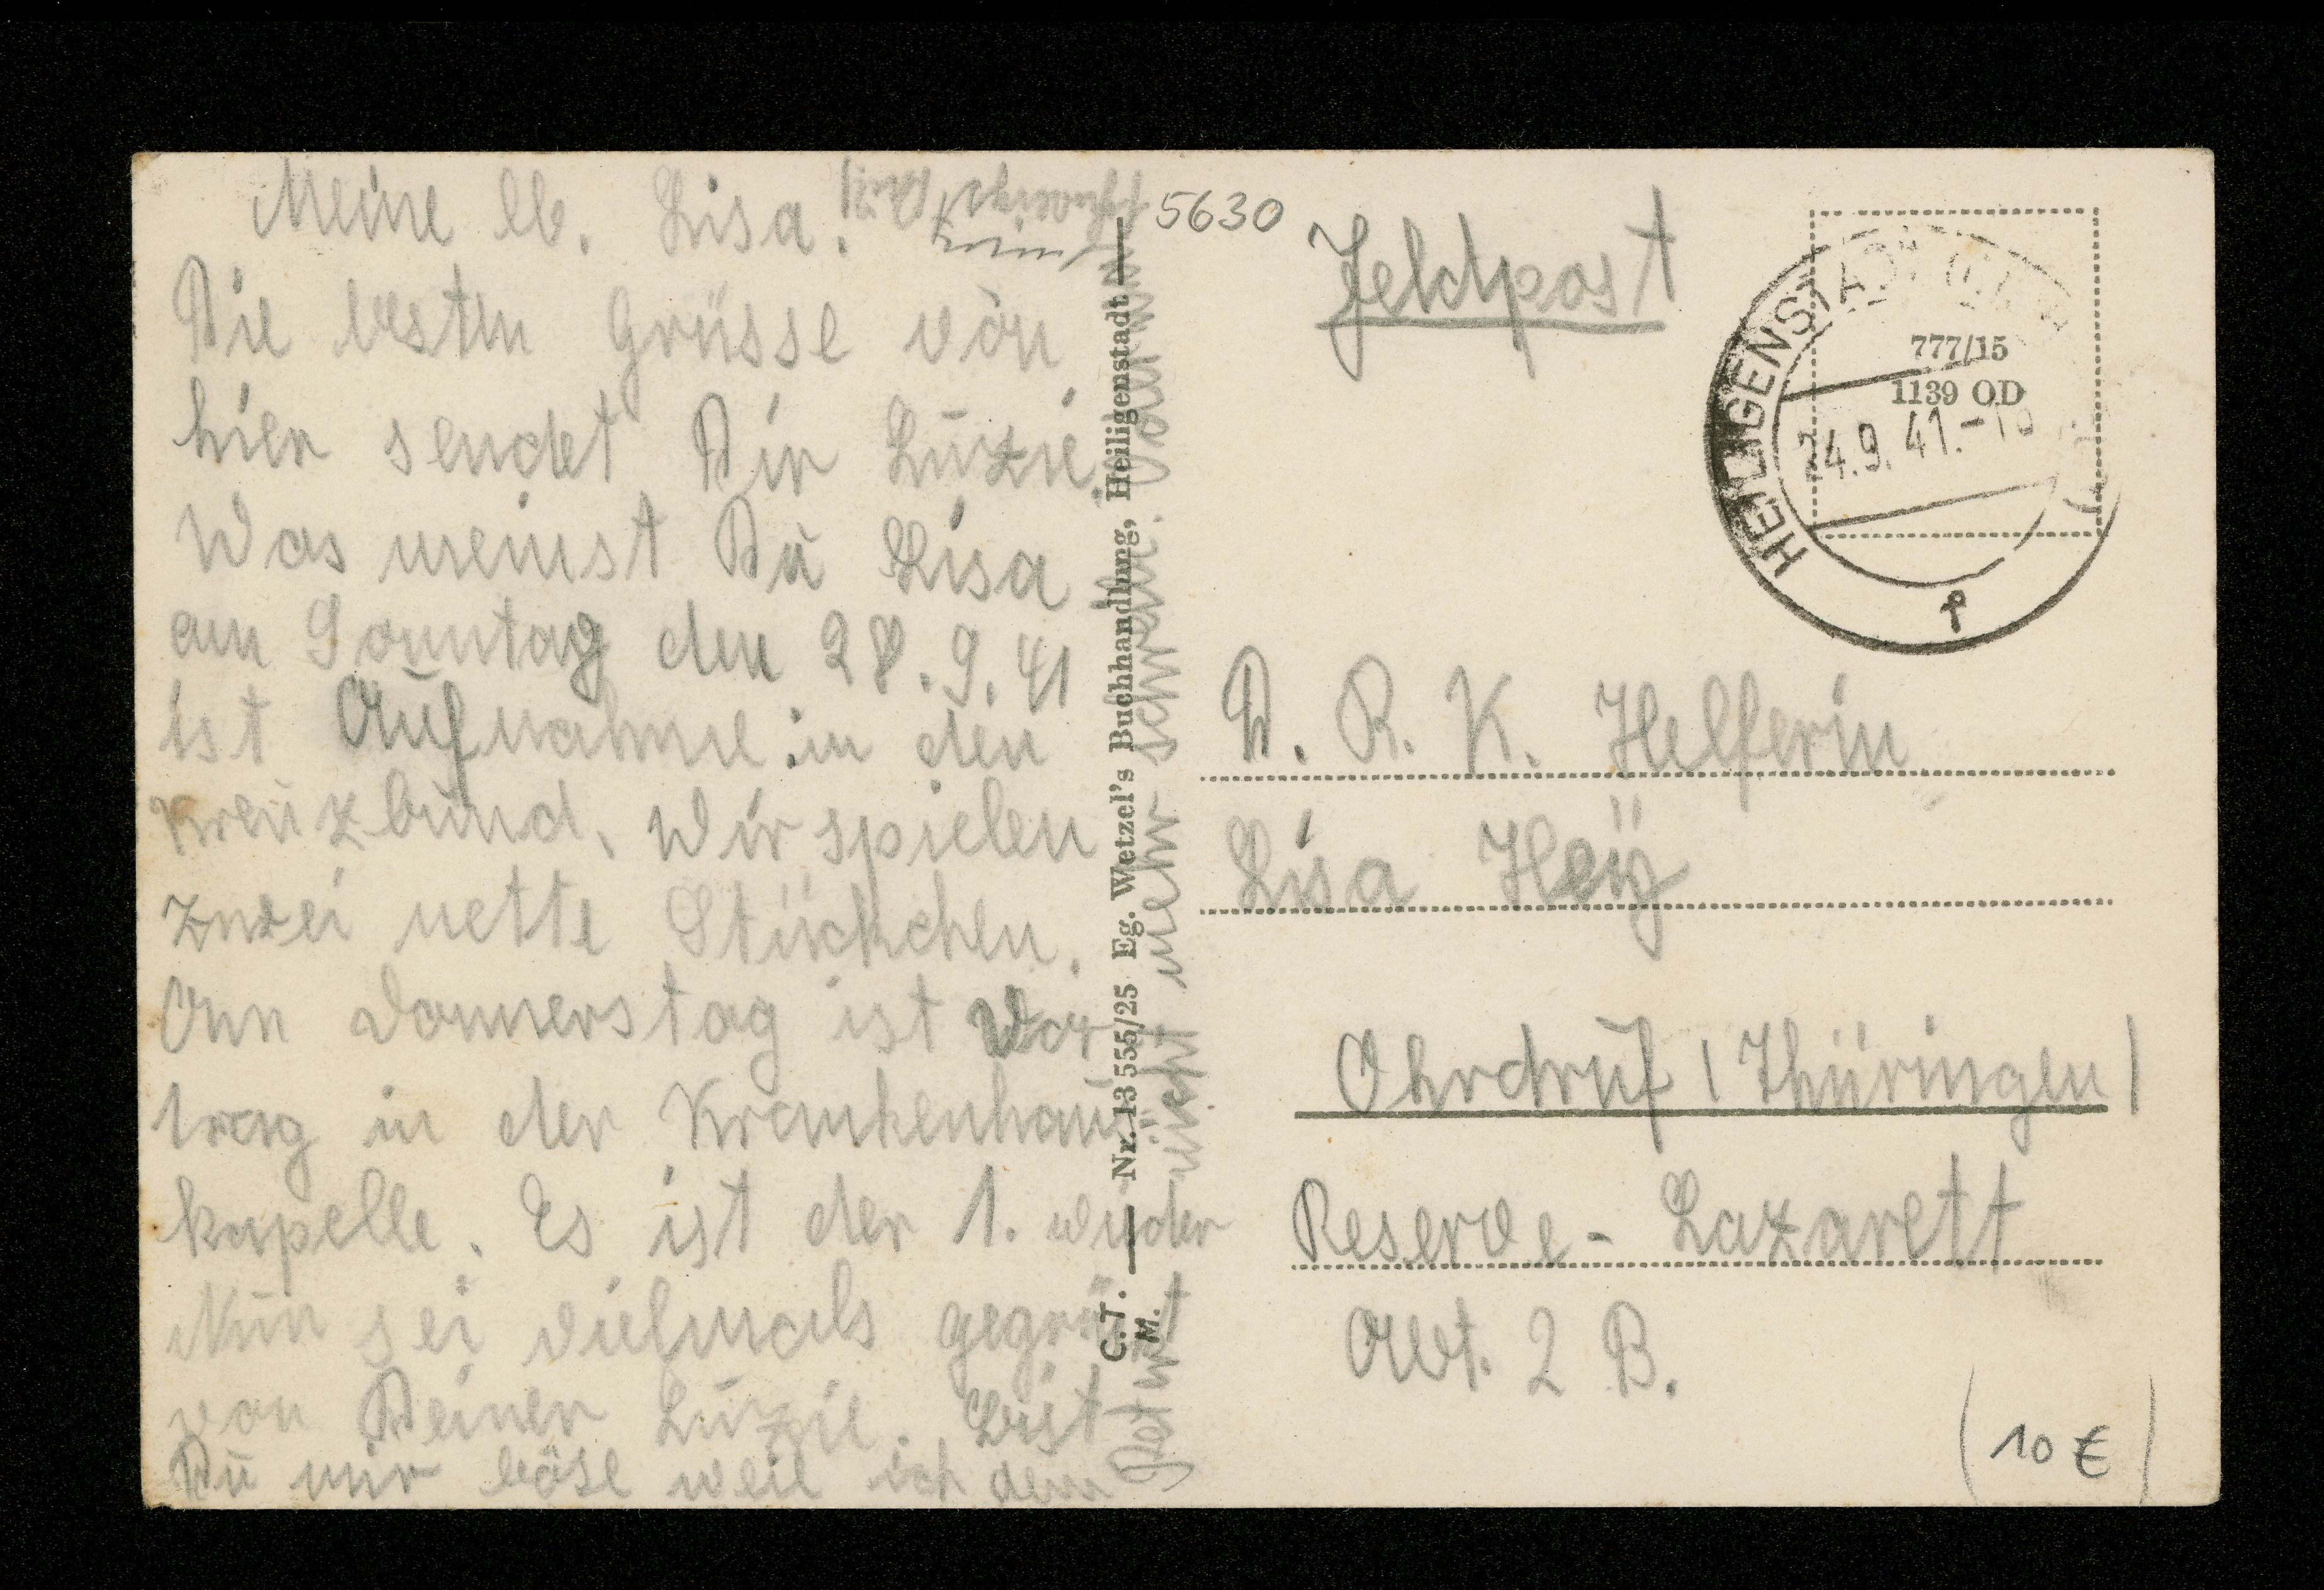 Meine lb. Lisa!
Die besten Grüsse von
hier sendet Dir Luzie.
Was meinst Du Lisa
am Sonntag den 28.9.41
ist Aufnahme in den
Kreuzbund. Wir spielen
zwei nette Stückchen.
Am Donnerstag ist Vor
trag in der Krankenhaus
kapelle. Es ist der 1. wieder
Nun sei vielmals gegrüßt
von Deiner Luzie. Bist
Du mir böse weil ich dem
nicht mehr schreibe.
C.T. Nr. 13 555/25 Eg. Wetzel's Buchhandlung, Heiligenstadt
M.
5630
Feldpost
HEILIGENSTADT
777/15
1139 OD
24.9.41.-18
D. R. K. Helferin
Lisa Heÿ
Ohrdruf (Thüringen)
Reserve-Lazarett
Abt. 2 B.
(10 €)